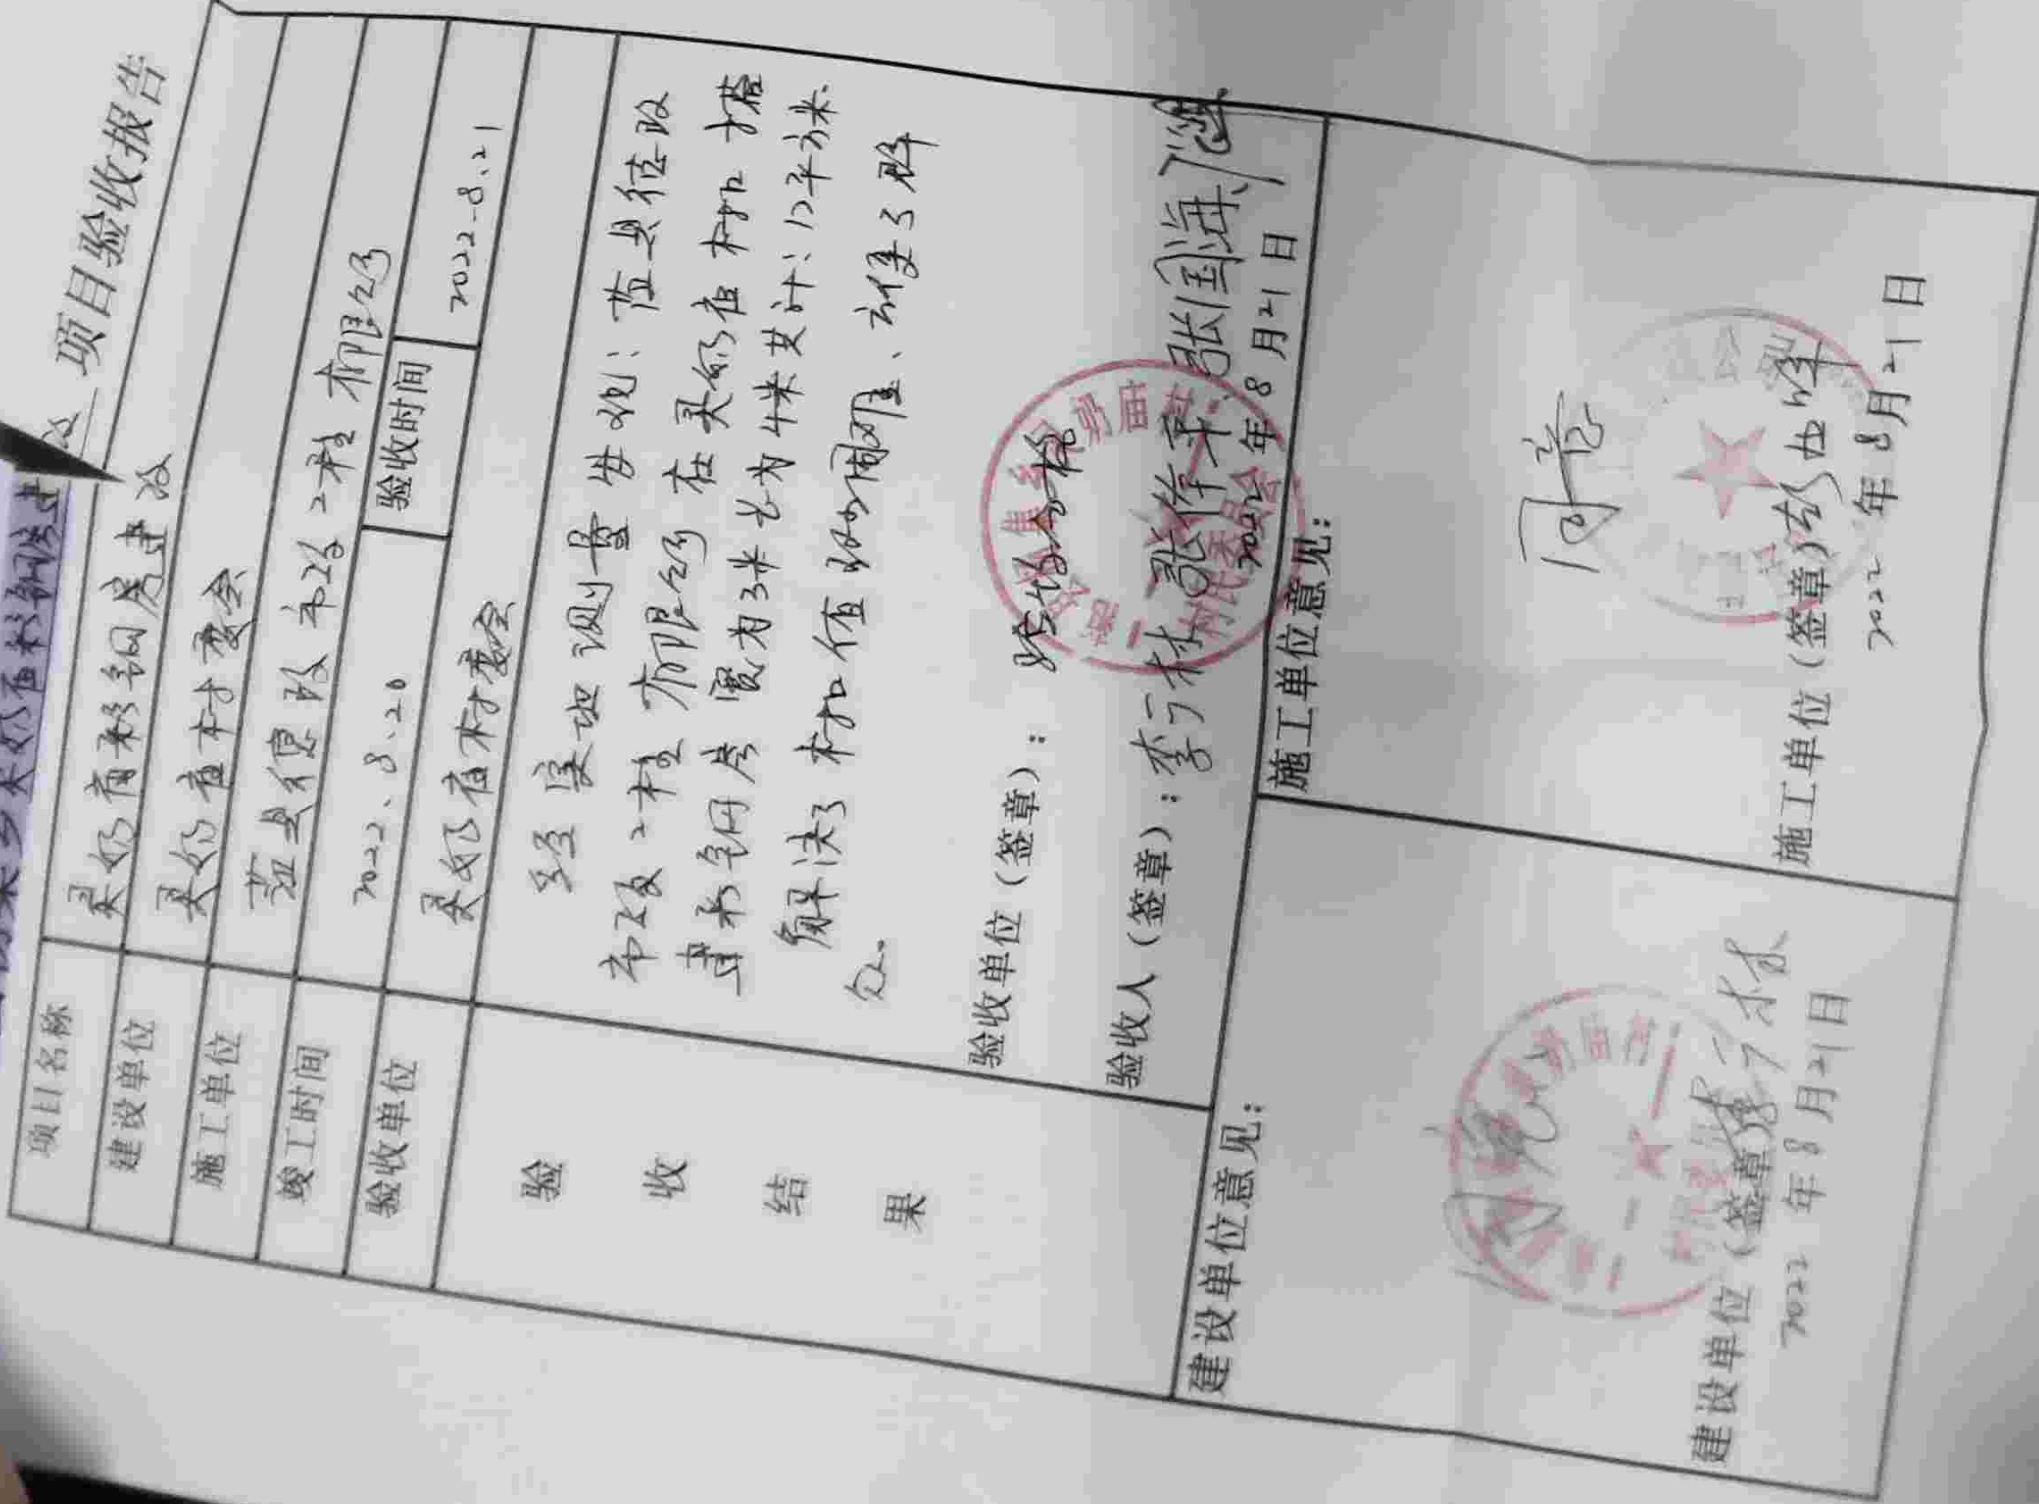 项目验收报告
项目名称 奶庙彩钢房建设
建设单位 奶庙村委会
施工单位 县德政市政工程有限公司
竣工时间 2022、8、20 验收时间 2022-8.21
验收单位 奶庙村委会
验收结果
经实地测量发现：县德政
市政工程有限公司在奶庙村口搭
建彩钢房宽为3米长为4米共计：12平方米.
解决了村口值班困难、方便了群
众。
验收单位（签章）： 验收合格
验收人（签章）：李广林 张作军、张国海、
2022年8月21日
建设单位意见：
同意
建设单位（签章）李广林
2022年8月21日
施工单位意见：
同意
施工单位（签章）
2022年8月21日